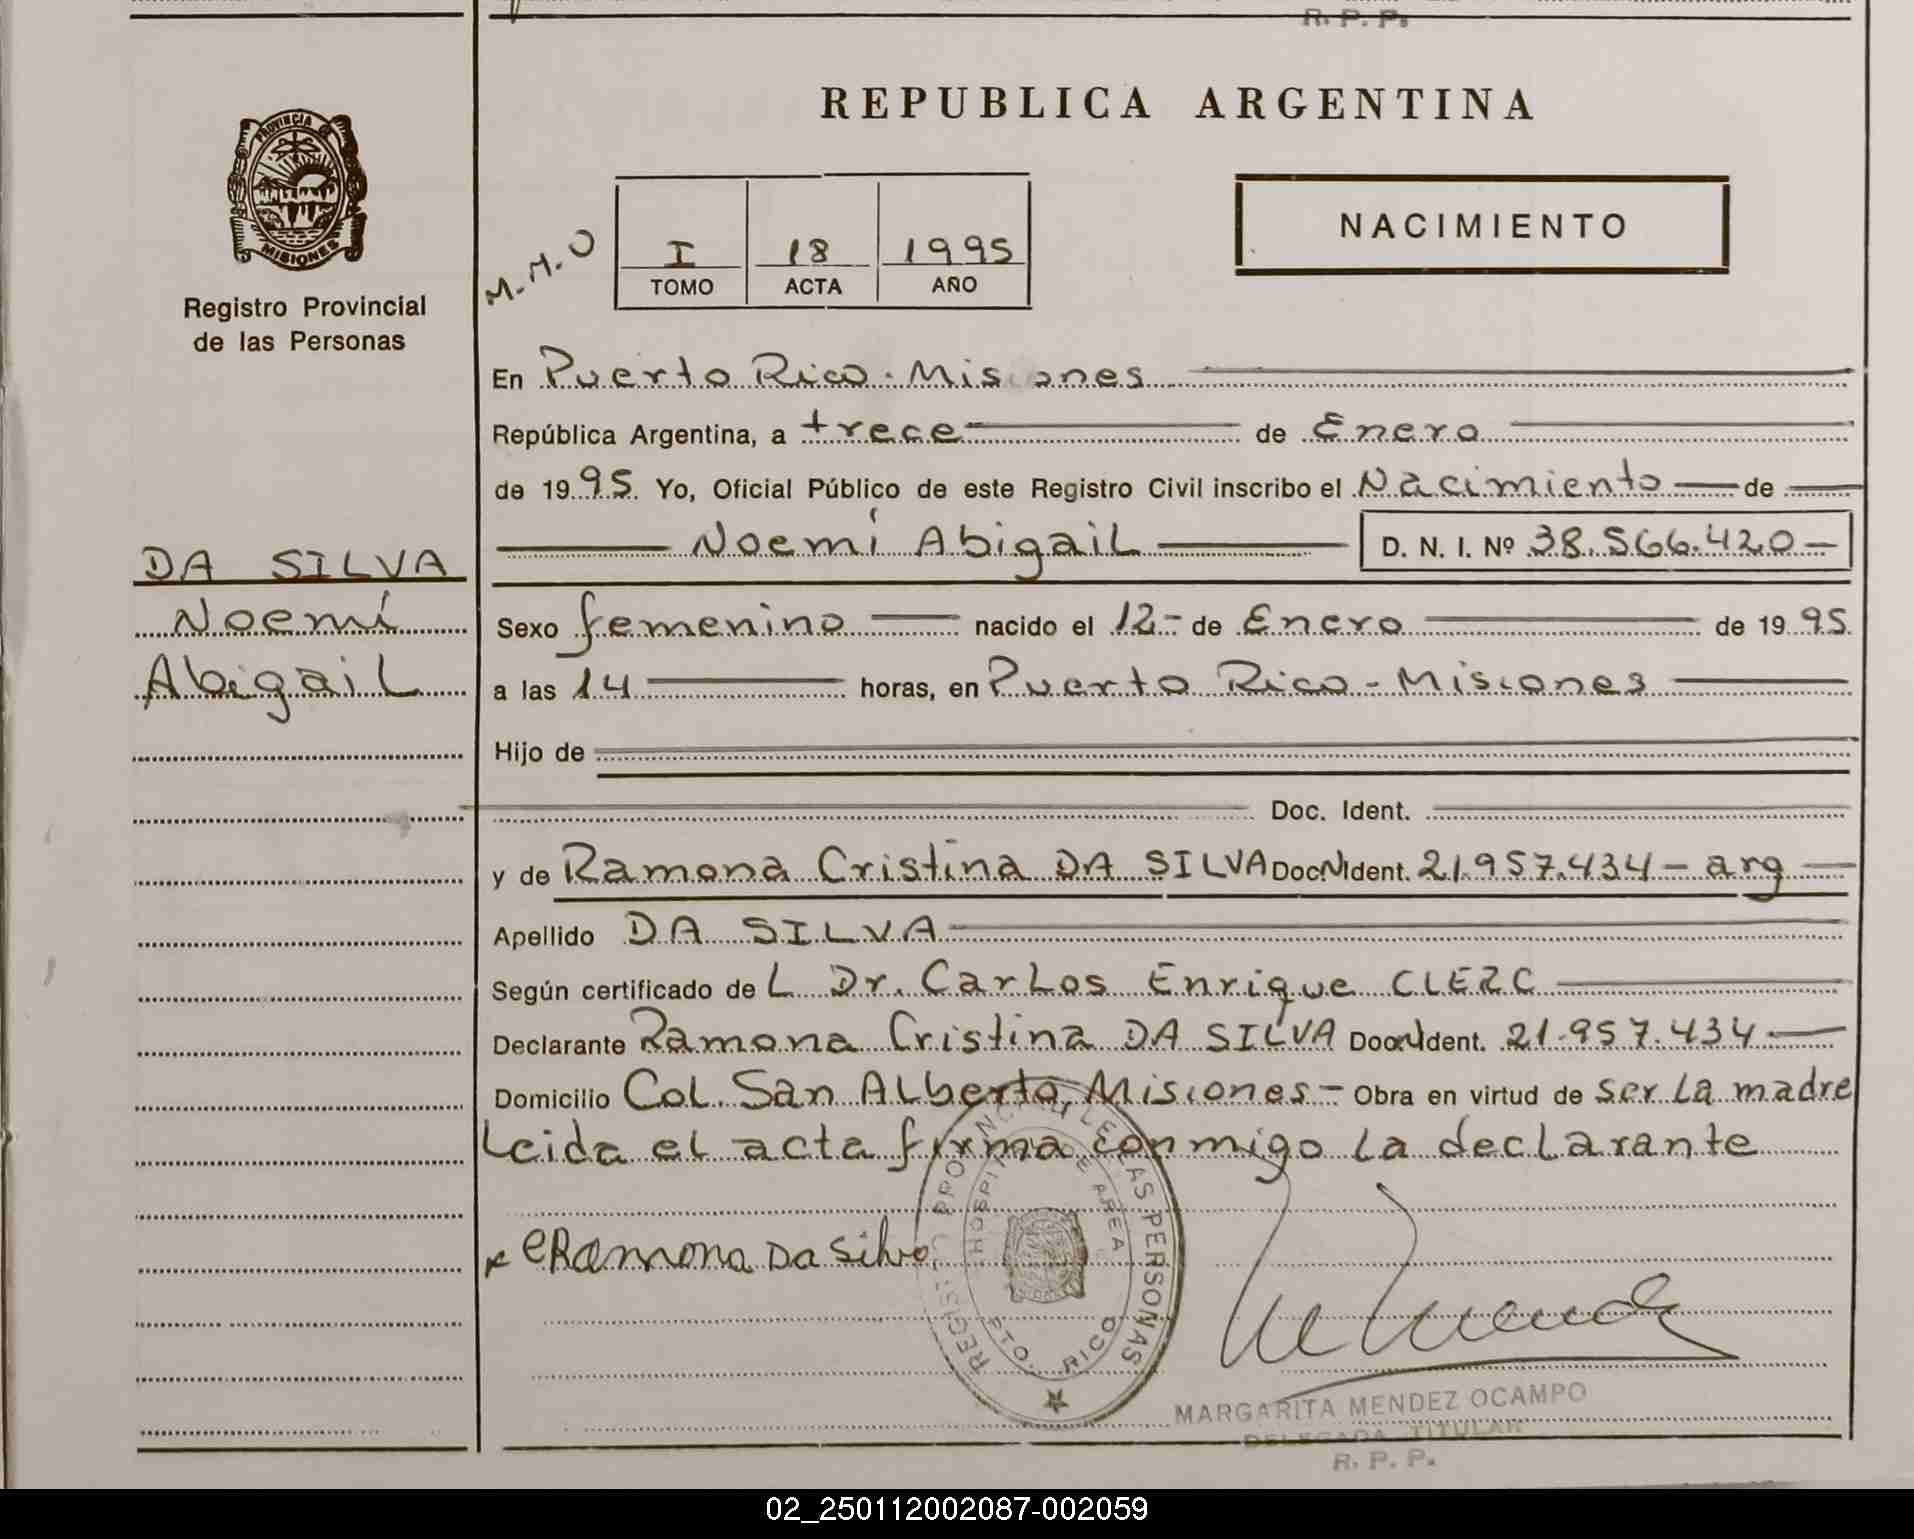 R. P. P.
REPUBLICA ARGENTINA
PROVINCIA DE
MISIONES
Registro Provincial
de las Personas
M.M.O
I 18 1995
TOMO ACTA AÑO
NACIMIENTO
En Puerto Rico - Misiones
República Argentina, a trece de Enero
de 1995. Yo, Oficial Público de este Registro Civil inscribo el Nacimiento de
Noemí Abigail D. N. I. Nº 38.566.420-
DA SILVA
Noemí
Abigail
Sexo femenino nacido el 12- de Enero de 1995.
a las 14 horas, en Puerto Rico - Misiones
Hijo de
Doc. Ident.
y de Ramona Cristina DA SILVA Doc N Ident. 21.957.434 - arg
Apellido DA SILVA
Según certificado de L Dr. Carlos Enrique CLERC
Declarante Ramona Cristina DA SILVA Doc N Ident. 21.957.434
Domicilio Col. San Alberto, Misiones - Obra en virtud de ser la madre
Leida el acta firma conmigo la declarante
x Ramona Da Silva
REGISTRO PROVINCIAL DE LAS PERSONAS
HOSPITAL DE AREA
PTO. RICO
MARGARITA MENDEZ OCAMPO
DELEGADA TITULAR
R. P. P.
02_250112002087-002059